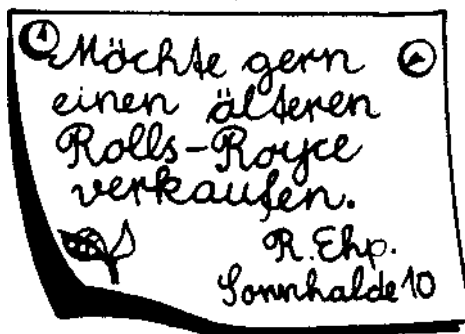 Möchte gern
einen älteren
Rolls-Royce
verkaufen.
R. Ehp.
Sonnhalde 10